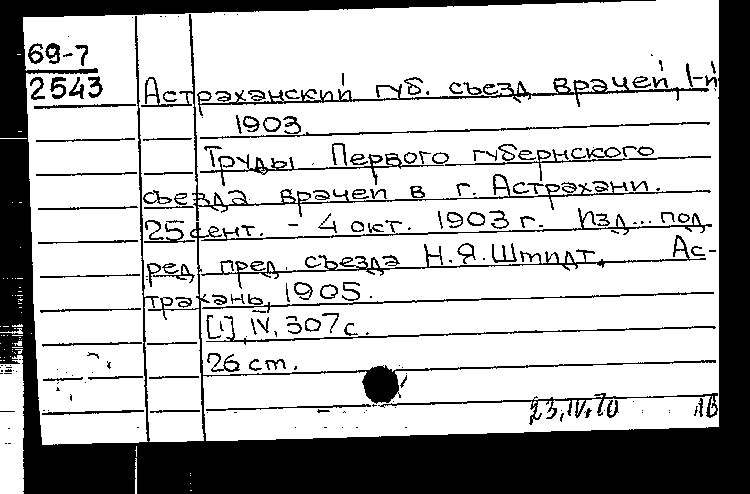 69-7
2543
Астраханский губ. съезд врачей, 1-й
1903.
Труды Первого губернского
съезда врачей в г. Астрахани.
25 сент. - 4 окт. 1903 г. Изд... под
ред. пред. съезда Н.Я.Штидт. Ас-
трахань, 1905.
[1], IV, 307 с.
26 cm.
23.IV.70 ЛВ